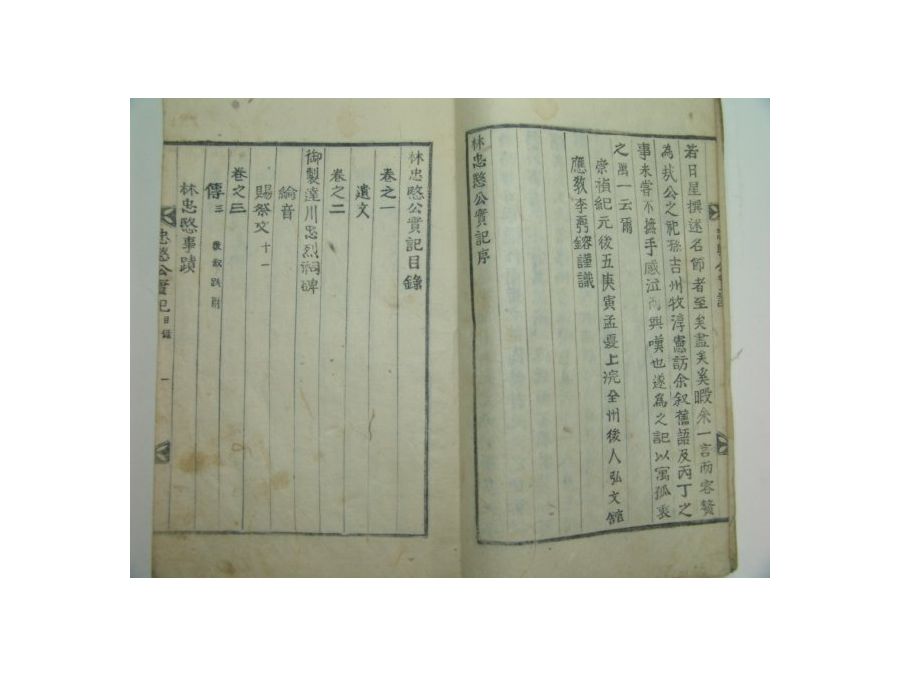 若日星撰述名節者至矣盡矣奚暇余一言而容贅
為我公之祀孫吉州牧淳憲訪余叙舊語及丙丁之
事未嘗不撫手感泣而興嘆也遂為之記以寓孤衷
之萬一云爾
崇禎紀元後五庚寅孟夏上浣全州後人弘文館
應敎李承謹識
林忠愍公實記序
林忠愍公實記目錄
卷之一
遺文
卷之二
御製達川忠烈祠碑
綸音
賜祭文 十一
卷之三
傳 三
林忠愍事蹟
忠愍公實記 目錄 一